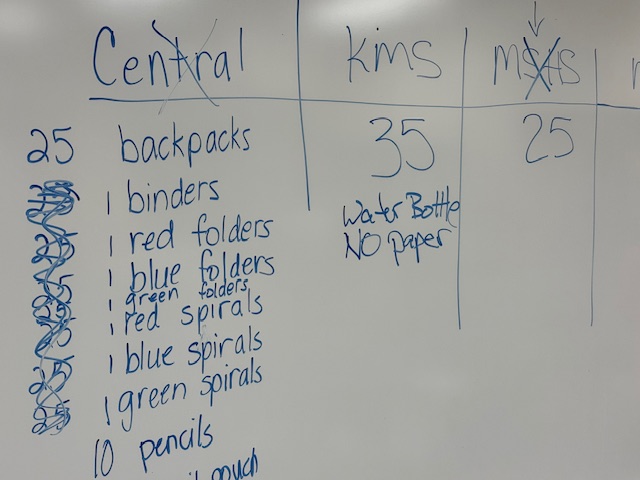 Central kims
25 backpacks 35 25
1 binders
Water Bottle
1 red folders
NO paper
1 blue folders
1 green folders
1 red spirals
1 blue spirals
1 green spirals
10 pencils
pouch